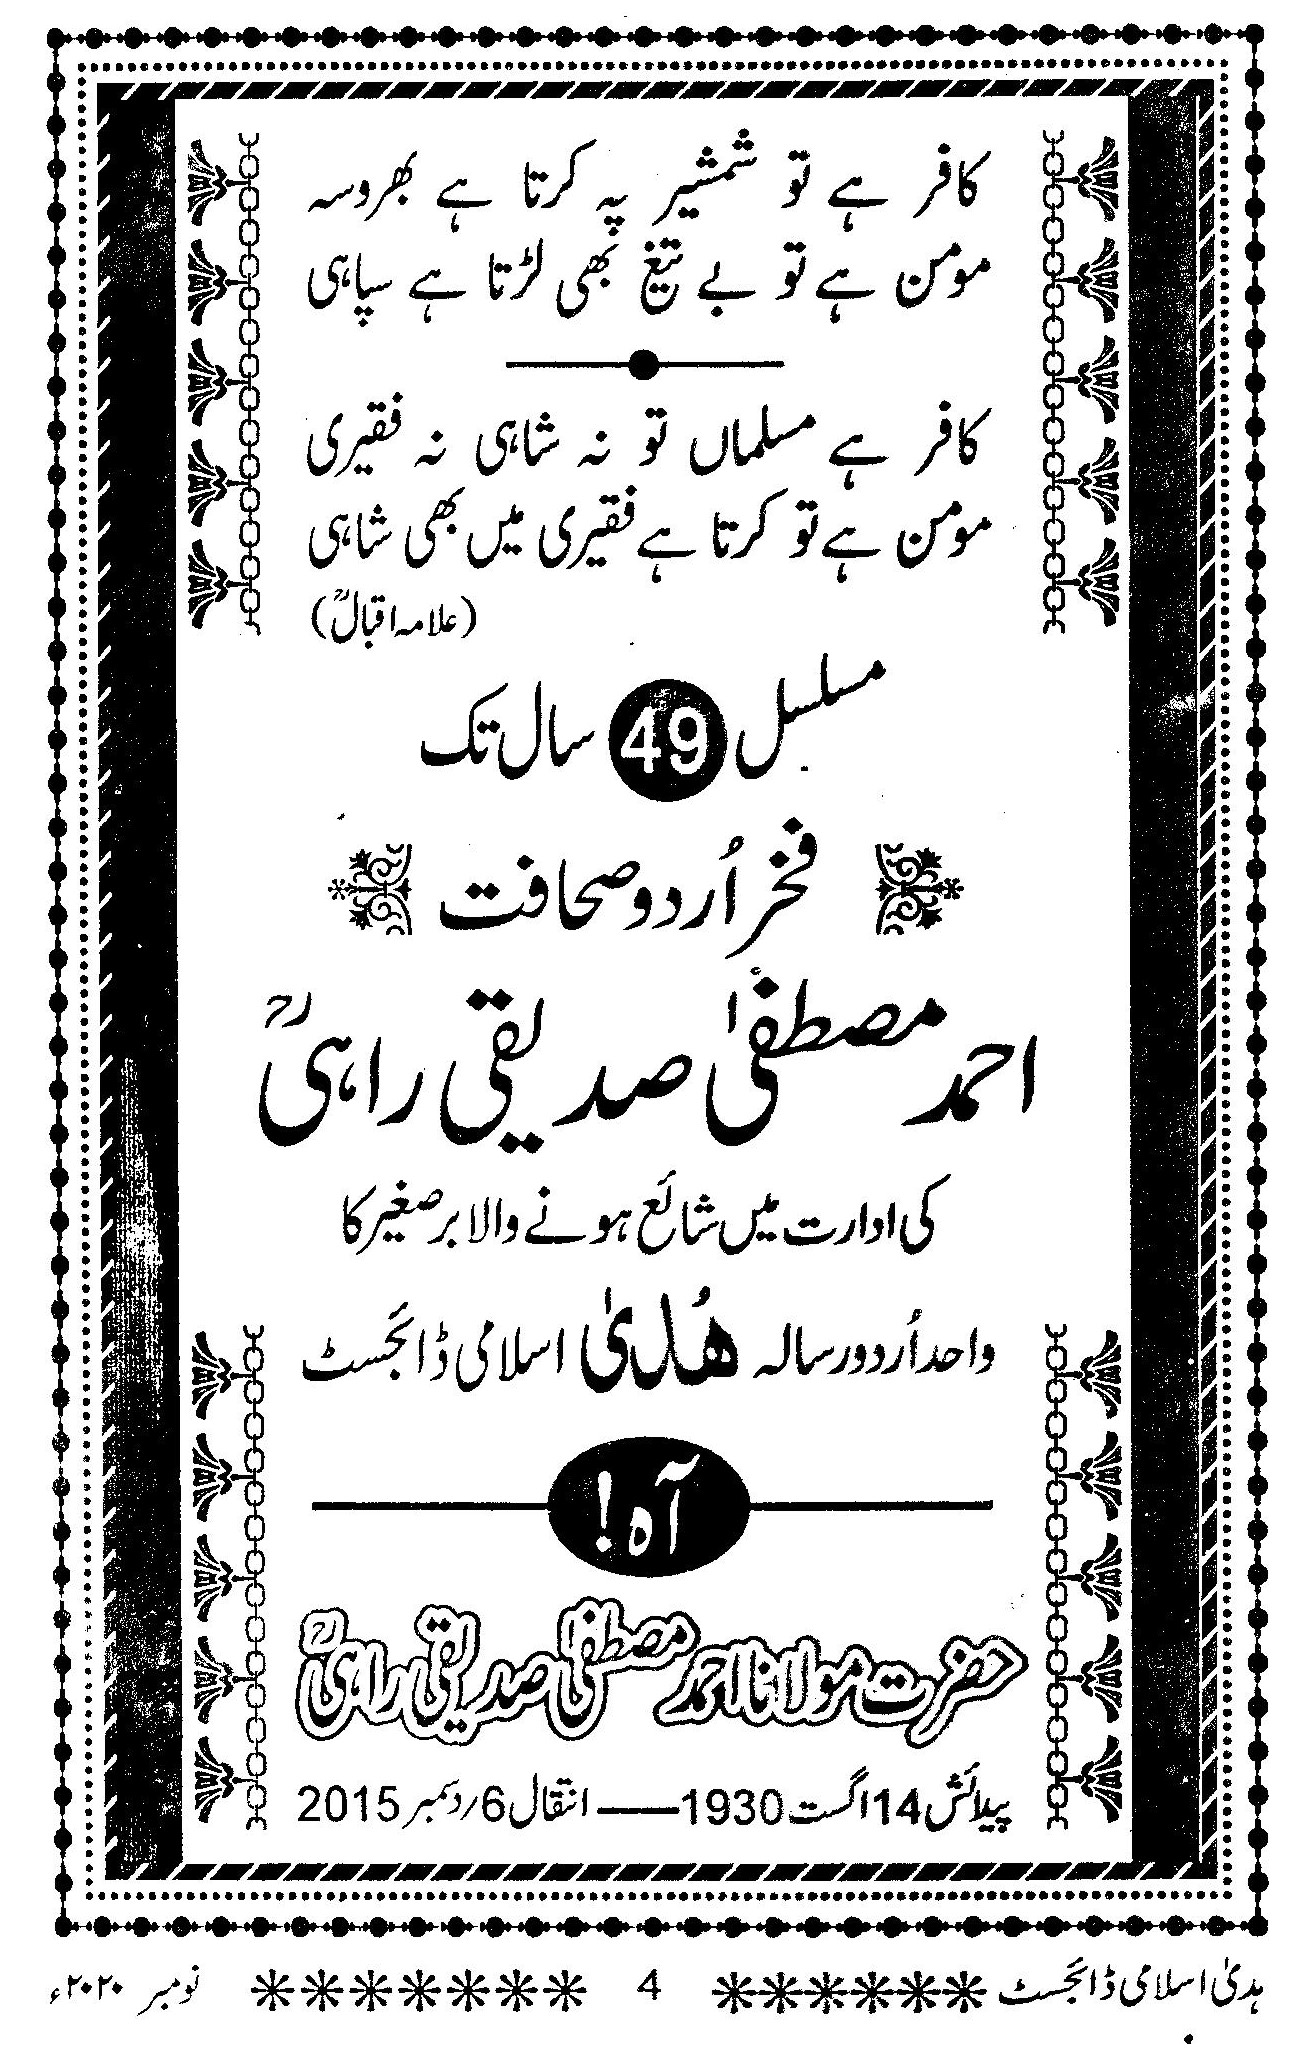 کافر ہے تو شمشیر پہ کرتا ہے بھروسہ
مومن ہے تو بے تیغ بھی لڑتا ہے سپاہی
کافر ہے مسلماں تو نہ شاہی نہ فقیری
مومن ہے تو کرتا ہے فقیری میں بھی شاہی
(علامہ اقبالؒ)
مسلسل 49 سال تک
فخر اُردو صحافت
احمد مصطفٰی صدیقی راہیؒ
کی ادارت میں شائع ہونے والا برصغیر کا
واحد اُردو رسالہ ھُدیٰ اسلامی ڈائجسٹ
آہ!
حضرت مولانا احمد مصطفٰی صدیقی راہیؒ
پیدائش 14 اگست 1930 —— انتقال 6؍ دسمبر 2015
ہدیٰ اسلامی ڈائجسٹ ✳✳✳✳✳✳✳ 4 ✳✳✳✳✳✳✳ نومبر ۲۰۲۰ء